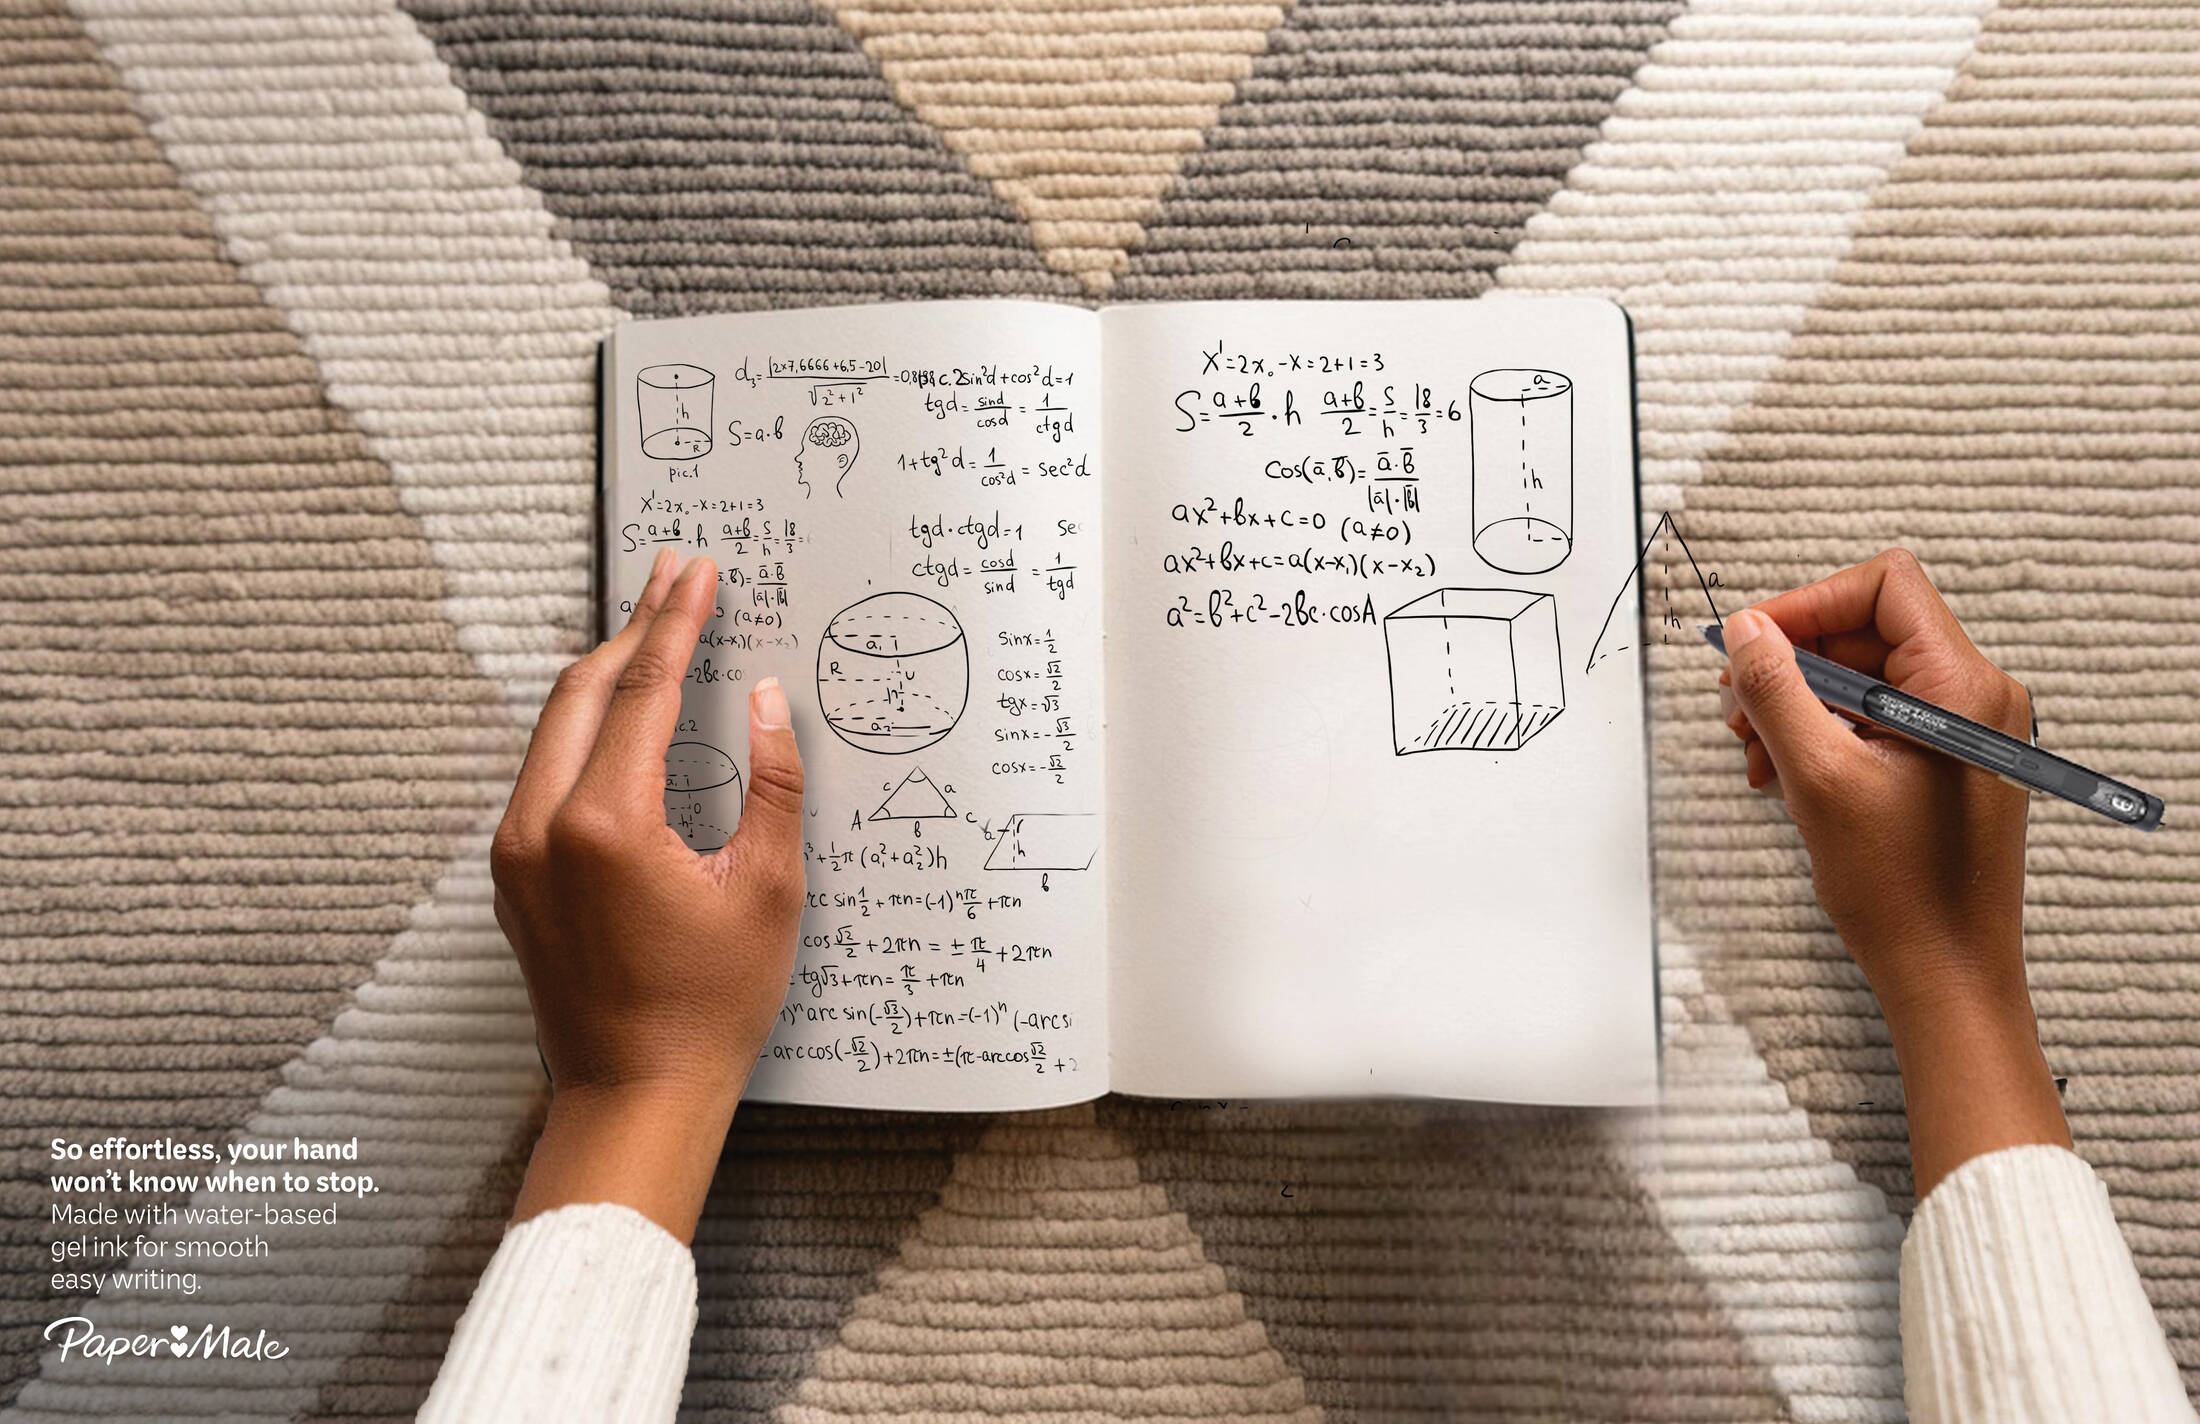 d₃=|2×7,6666+6,5-20|/√2²+1²
sin²d+cos²d=1
h
tgd=sind/cosd=1/ctgd
S=a·b
R
pic.1
1+tg²d=1/cos²d=sec²d
X'=2x₀-x=2+1=3
S=a+b/ ·h a+b/2=s/h=18/3=
tgd·ctgd=1 se
ā·b̄/|ā|·|b̄|
ctgd=cosd/sind=1/tgd
(a≠0)
a(x-x₁)(x-x₂)
-2bc·cos
a₁
R
h
a₂
sinx=1/2
cosx=√2/2
tgx=√3
sinx=-√3/2
cosx=-√2/2
c.2
a₁
h
c a
A b C
a h
b
+1/2π(a₁²+a₂²)h
rc sin1/2+πn=(-1)ⁿπ/6+πn
cos√2/2+2πn=±π/4+2πn
=tg√3+πn=π/3+πn
1)ⁿarcsin(-√3/2)+πn=(-1)ⁿ(-arcsi
=arccos(-√2/2)+2πn=±(π-arccos√2/2+2
X'=2x₀-x=2+1=3
S=a+b/2·h a+b/2=s/h=18/3=6
a
h
cos(ā,b̄)=ā·b̄/|ā|·|b̄|
ax²+bx+c=0 (a≠0)
ax²+bx+c=a(x-x₁)(x-x₂)
a²=b²+c²-2bc·cosA
a
h
So effortless, your hand
won't know when to stop.
Made with water-based
gel ink for smooth
easy writing.
Paper Mate